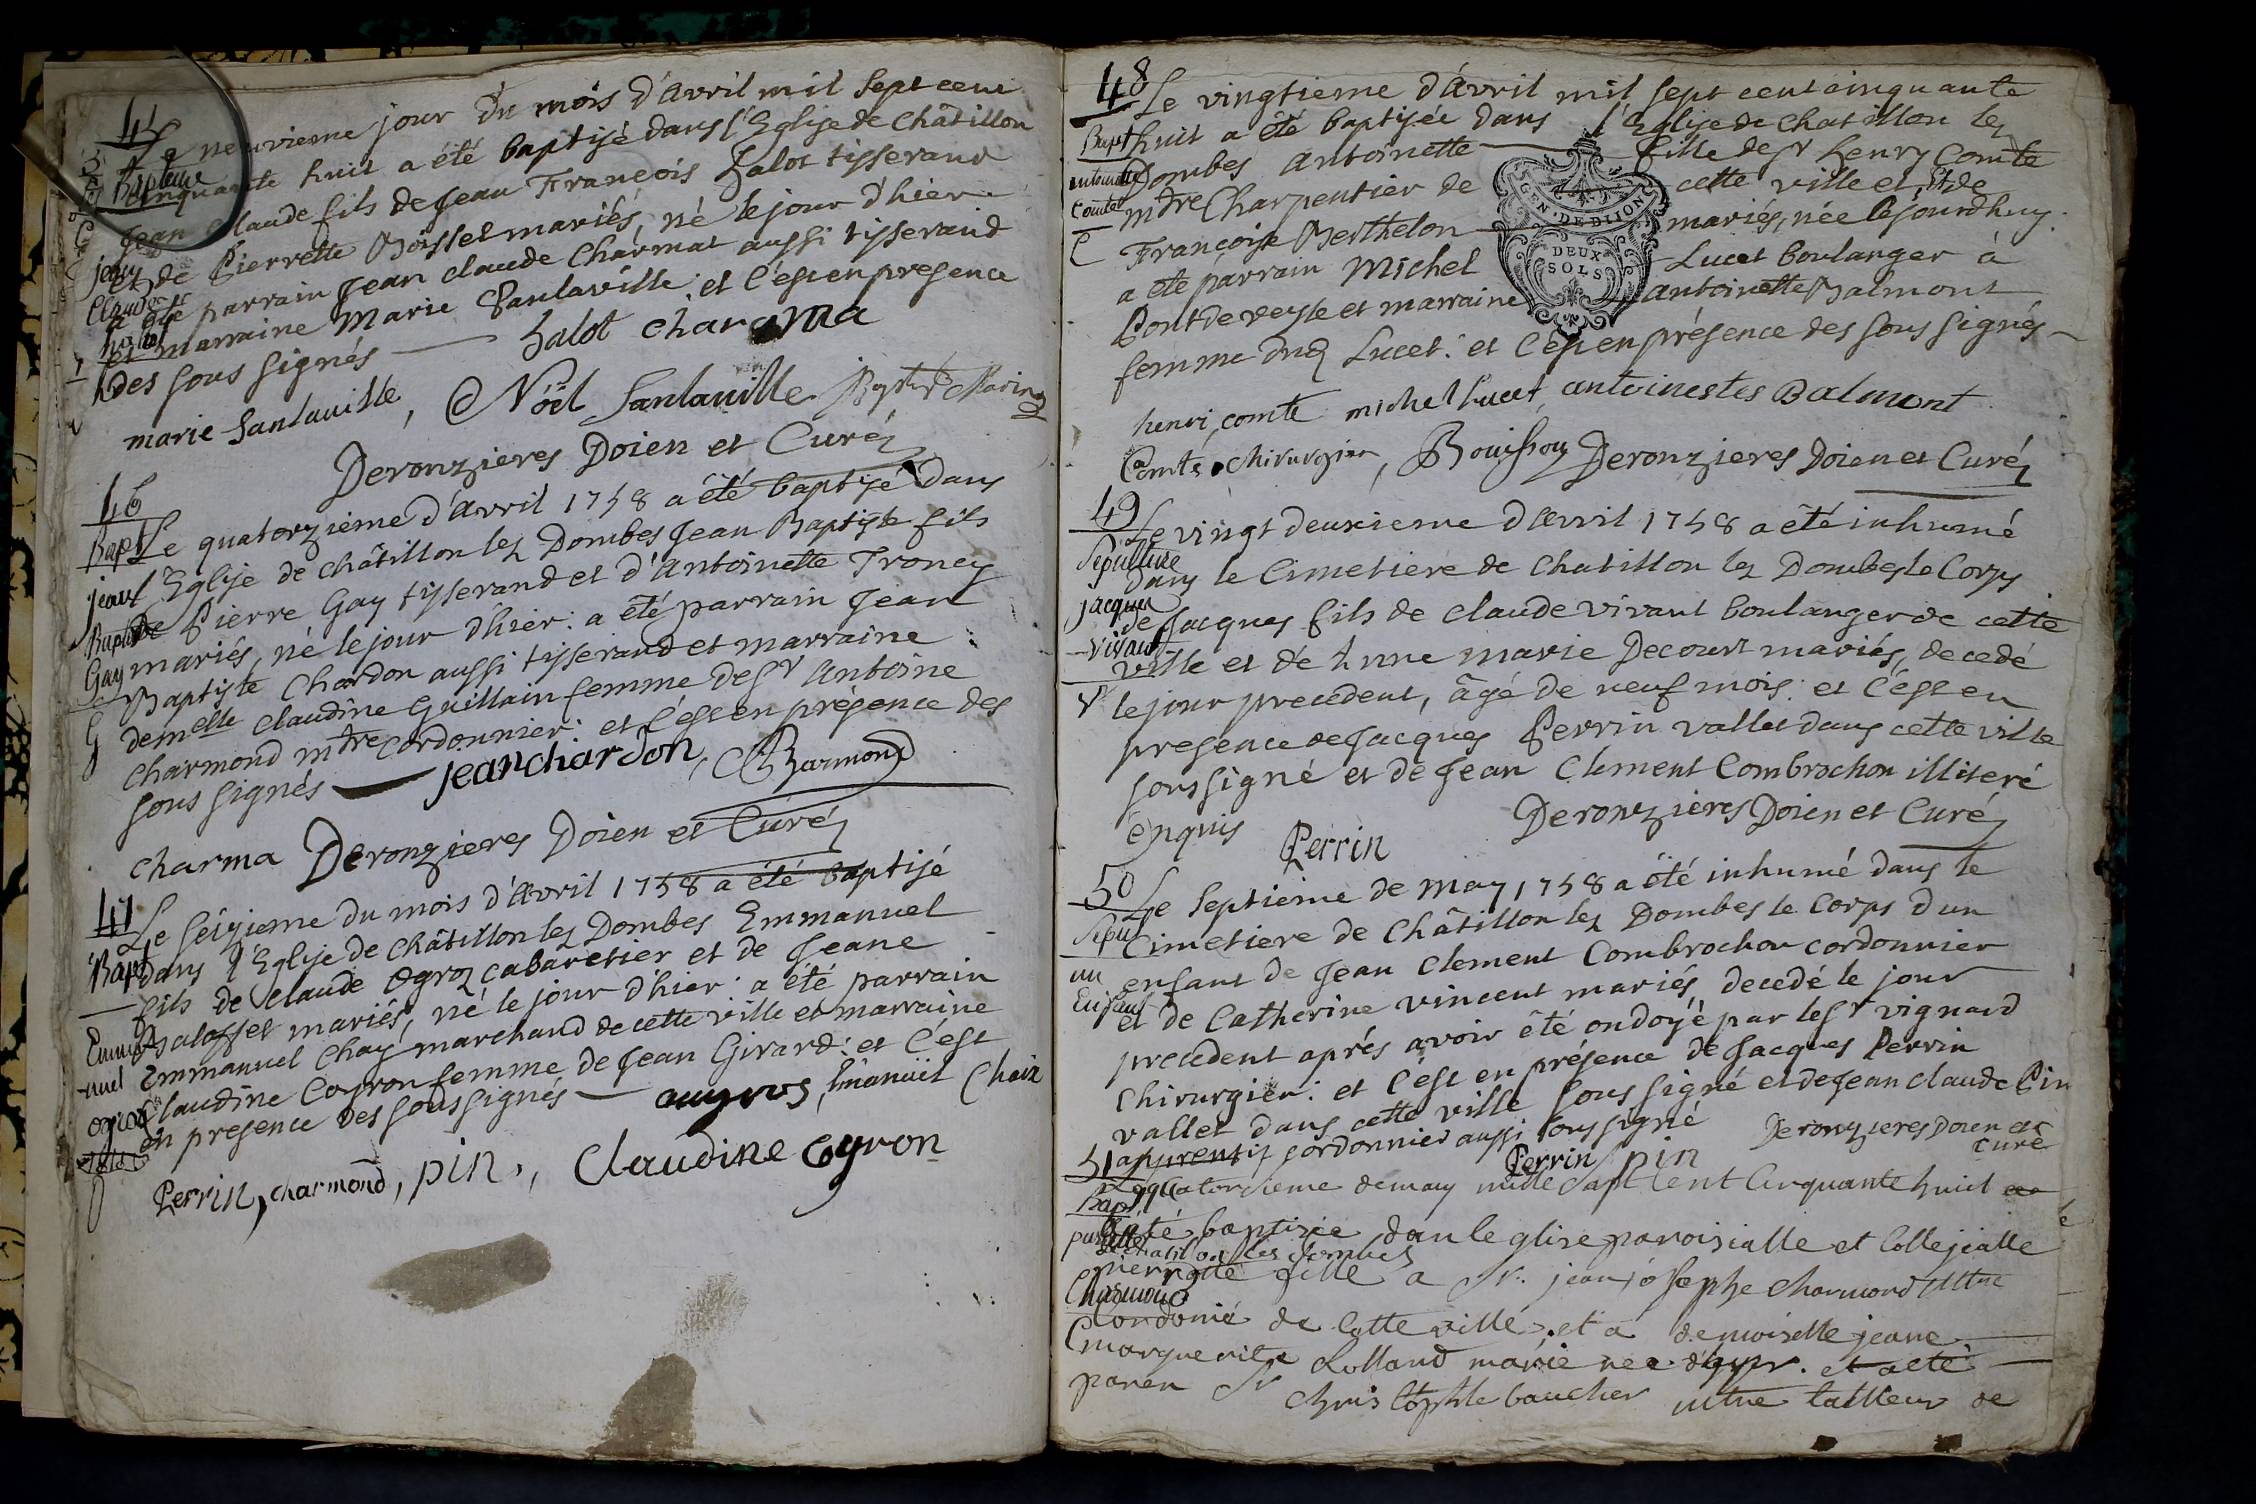 45
Le neuvieme jour du mois d'Avril mil sept cent
Bapteme
cinquante huit a été baptisé dans l'Eglise de Châtillon
Jean Claude fils de Jean François halot tisserand
jean
et de Pierrette Boisset mariés, né le jour d'hier
Claude
a été parrain Jean claude Charmat aussi tisserand
halot
et marraine Marie Sanlaville et c'est en presence
h
des sous signés — halot charma
marie Sanlaville, Noël Sanlaville
Deronzieres Doien et Curé
46
Bapt
Le quatorzieme d'Avril 1758 a été baptisé dans
l'Eglise de châtillon lez Dombes Jean Baptiste fils
jean
de Pierre Gay tisserand et d'Antoinette Troncy
Baptiste
mariés, né le jour d'hier: a été parrain Jean
Gay
Baptiste Chardon aussi tisserand et marraine
G
demelle Claudine Guillain femme de Sr Antoine
Charmond mtre cordonnier: et c'est en présence des
sous signés — jean chardon, Charmond
charma Deronzieres Doien et Curé
47
Le seizieme du mois d'Avril 1758 a été baptisé
Bapt
dans l'Eglise de Châtillon lez Dombes Emmanuel
fils de Claude Ogroz cabaretier et de Jeane
Emma
Salosset mariés, né le jour d'hier: a été parrain
nuel
Emmanuel Chay marchand de cette ville et marraine
ogroz
Claudine Coyron femme de Jean Girard: et c'est
en presence des sous signés — augros, Emanuel Chaix
Perrin, charmond, pin, Claudine Coyron
48
Le vingtieme d'Avril mil sept cent cinquante
Bapt
huit a été baptisée dans l'Eglise de Chatillon lez
antoinette
Dombes Antoinette — fille de Sr Henry Comte
Comte
mtre Charpentier de cette ville et de
C
Françoise Berthelon — mariés, née le jourdhuy.
a été parrain Michel — Lucet boulanger à
Pontdeveyle et marraine — Antoinette Balmont
femme dud Lucet: et c'est en présence des sous signés —
GEN. DE DIJON
DEUX
SOLS
henri comte michel lucet, antoinestes Balmont
Comte chirurgien, Bouisson Deronzieres Doien et Curé
49
Le vingt deuxieme d'Avril 1758 a été inhumé
Sepulture
dans le Cimetiere de Chatillon lez Dombes le Corps
jacques
de Jacques fils de Claude Vivant boulanger de cette
vivant
ville et de Anne Marie Decourt mariés, decedé
V
le jour precedent, âgé de neuf mois: et c'est en
presence de Jacques Perrin vallet dans cette ville
sous signé et de Jean Clement Combrochon illiteré
enquis Perrin Deronzieres Doien et Curé
50
Le Septieme de May 1758 a été inhumé dans le
Sepul
Cimetiere de Châtillon lez Dombes le Corps d'un
un
enfant de Jean Clement Combrochon cordonnier
Enfant
et de Catherine Vincent mariés, decedé le jour
precedent aprés avoir été ondoyé par le Sr Vignard
Chirurgien: et c'est en présence de Jacques Perrin
vallet dans cette ville sous signé et de Jean Claude Pin
apprentif cordonnier aussi sous signé
Perrin pin Deronzieres Doien et
curé
51
quatorsieme de may mille Sapt Cent Cinquante huit
Bapt
a été baptisée dan leglise paroisialle et Collejialle
de chatillon les dombes
pierrette fille a Sr. jean josephe charmond mtre
Charmond
Cordonié de Cette ville, et a demoiselle jeane
C
marguerite Rolland marie nee d'yyr. et a eté
paren Sr Christophle baucher mtre tailleur de